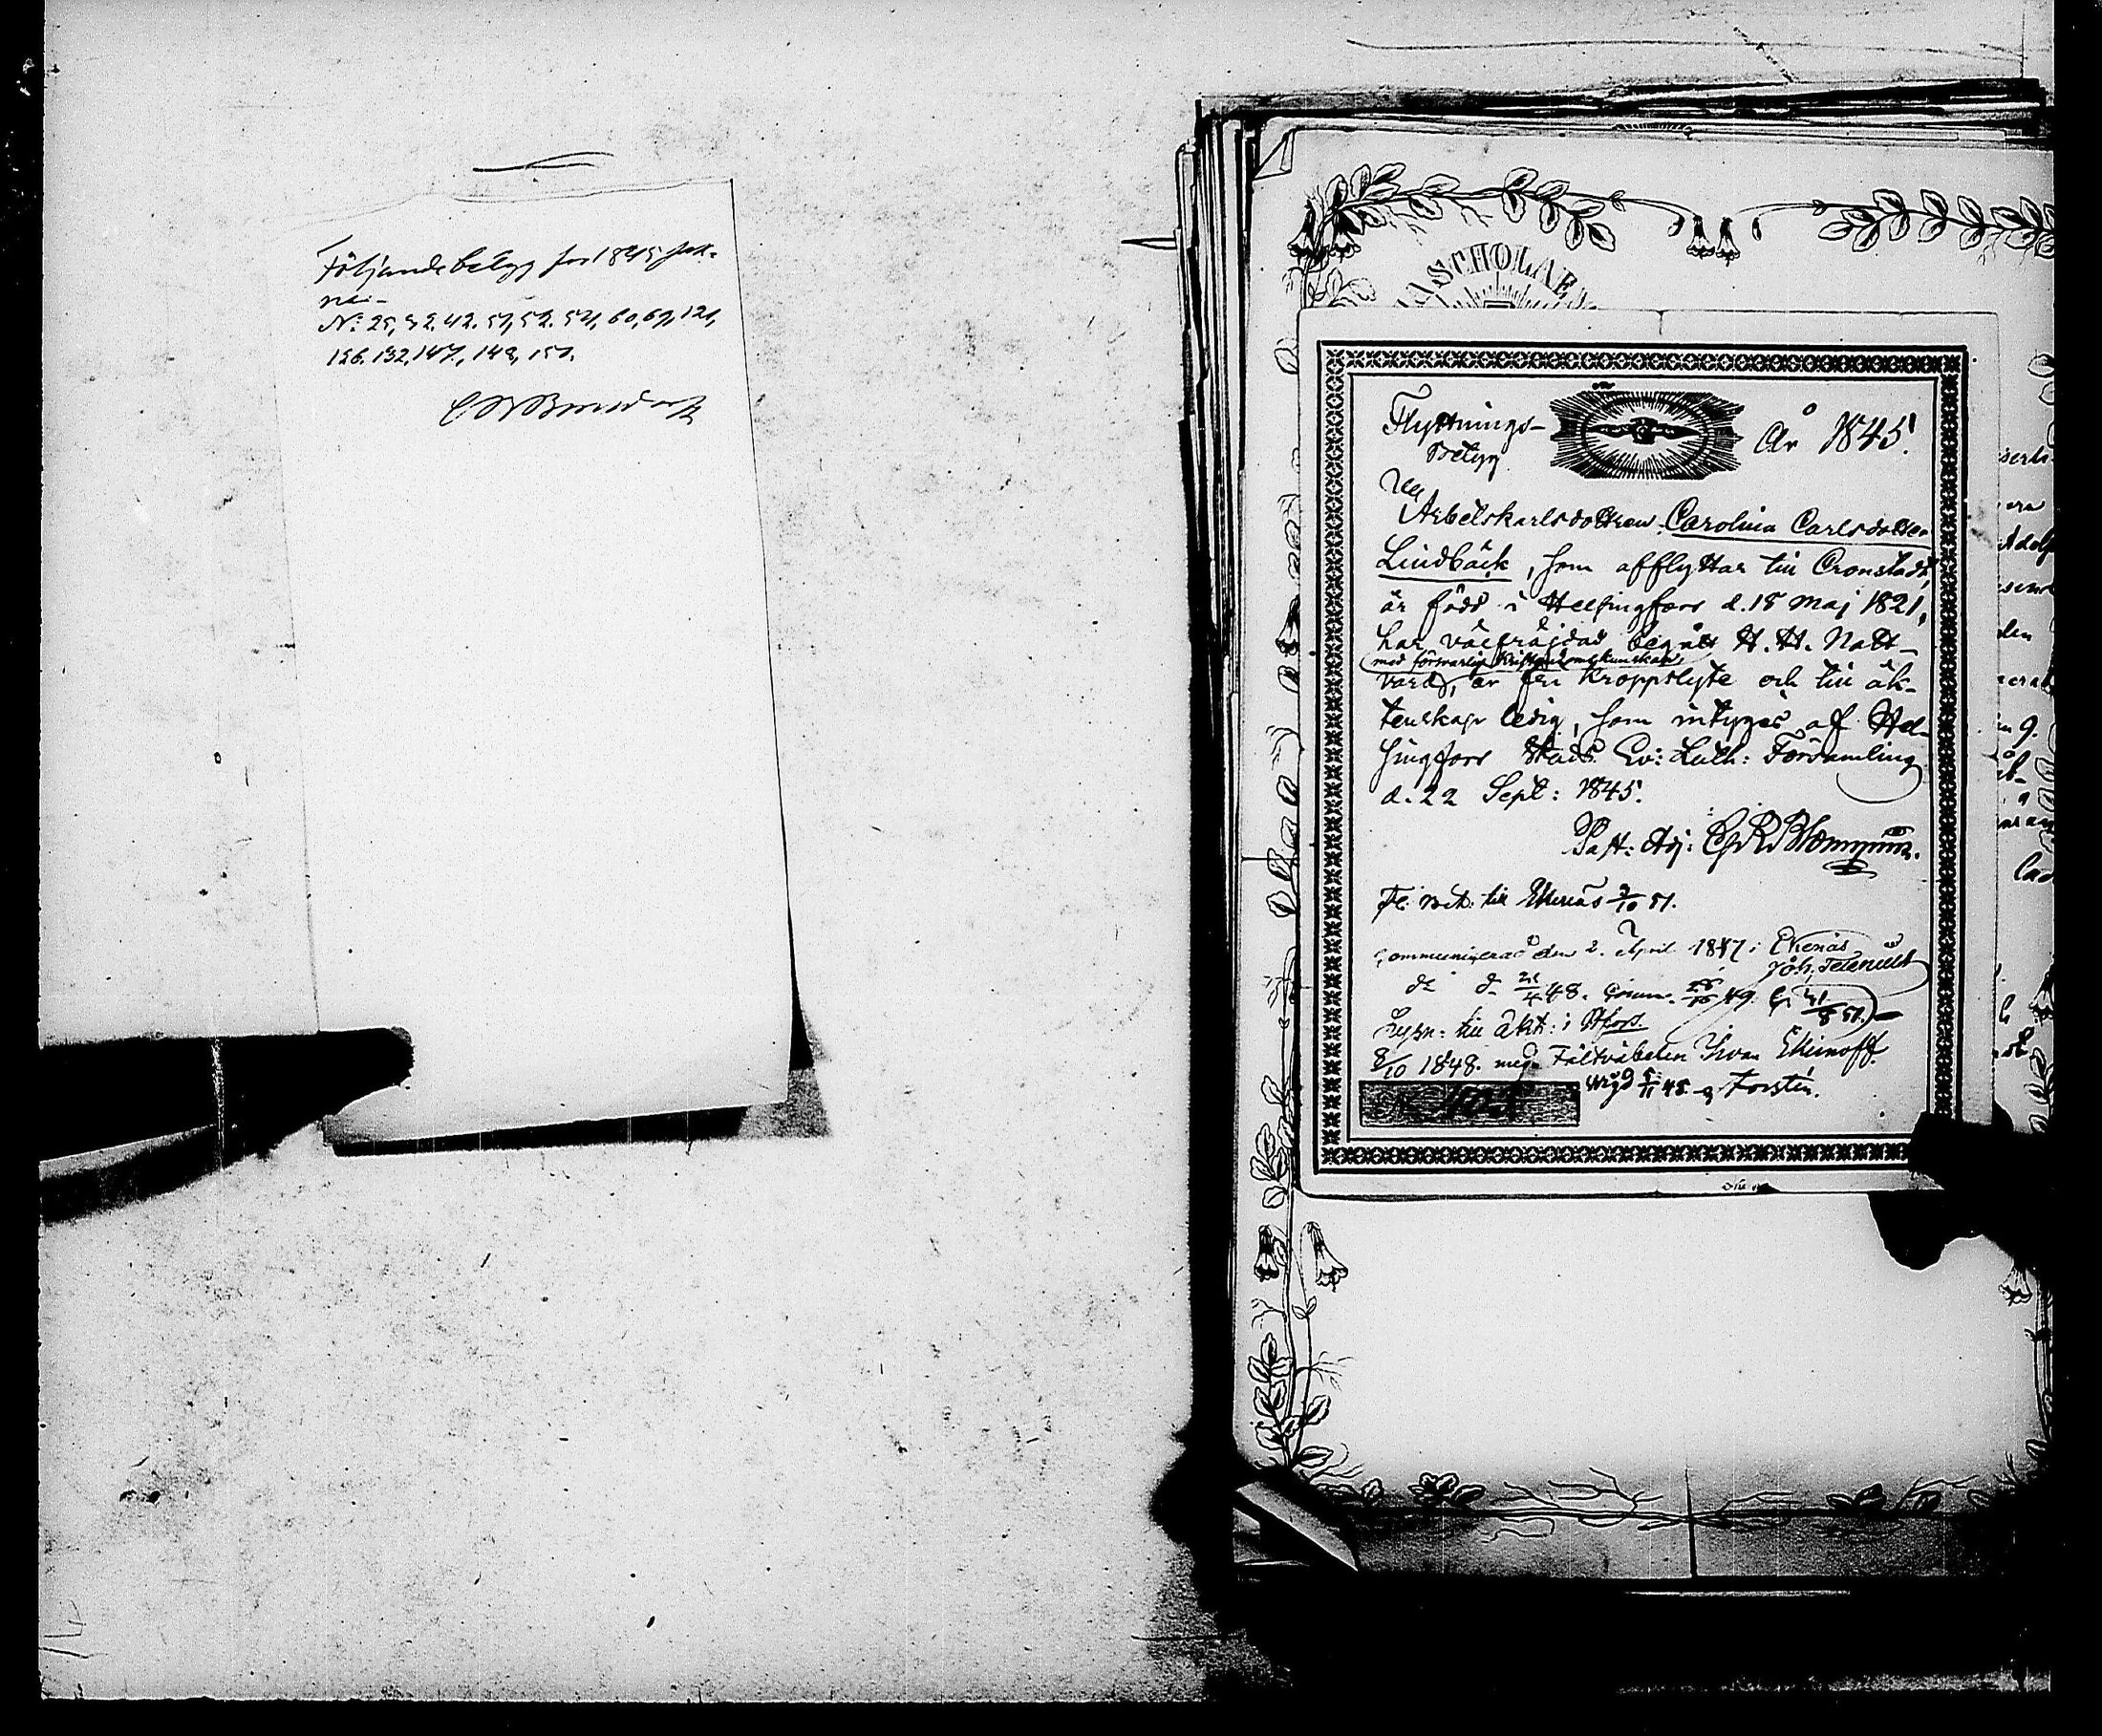 Följande betyg för 1845 sak-
na:-
N: 25, 32, 42. 51, 52. 54, 60, 69, 121,
126. 132, 147, 148, 151.
SCHOLAE
Flyttnings-
Betyg
År 1845.
Arbetskarlsdottren Carolina Carlsdotter
Lindbäck, som afflyttar till Cronstadt,
är född i Helsingfors d. 18 Maj 1821,
har välfräjdad begått H. H. Natt-
med försvarlig Kristendomskunskap,
vard, är fri Kroppslyte och till äk-
tenskap ledig, som intygas af Hel-
singfors Stads Ev: Luth: Församling
d. 22 Sept: 1845.
Past: Adj:
till Ekenäs 2/10 51.
Communicerad den 2. April 1847 i Ekenäs
d 48. 49.
Lysn: till äkt: i Hfors.
8/10 1848. med Fältväbelen Iwan Ekimoff.
5/11 45. Forstén.